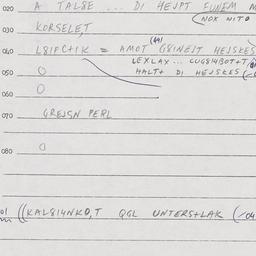 020 A TAL8E ... DI HEJPT FUNEM M
(NOX NITO
030 KORSELE,T
040 L8IFC+IK = AMOT G8INEJT HEJSKES
LEXLAX ... CUG8I4BOT+T
050 O HALT+ DI HEJSKES
060 O
070 GREJSN PERL
080 O
01 ((KAL8I4NKD,T QGL UNTERST+LAK (-04